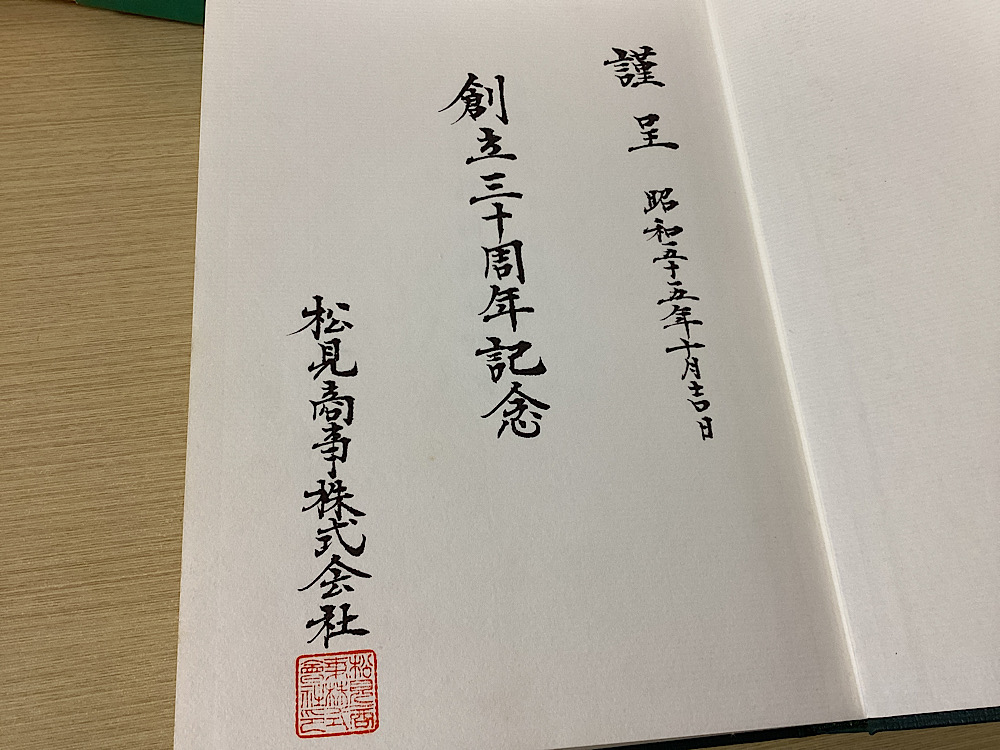 謹呈 昭和五十五年十月吉日
創立三十周年記念
松見商事株式会社
松見商
事株式
會社之印